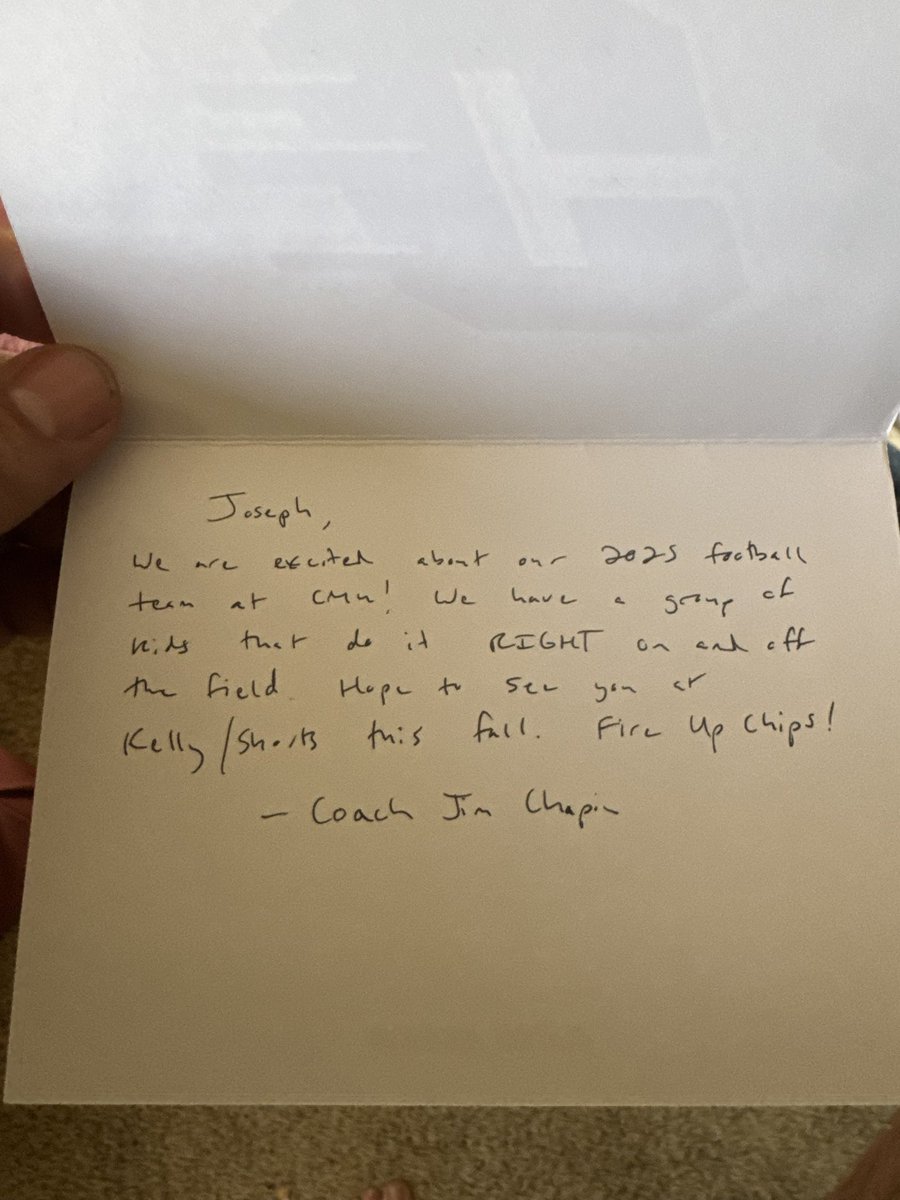 Joseph,
We are excited about our 2025 football
team at CMU! We have a group of
kids that do it RIGHT on and off
the field. Hope to see you at
Kelly/Shorts this fall. Fire Up Chips!
– Coach Jim Chapin